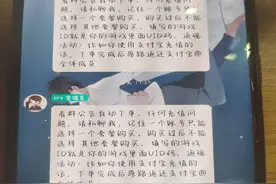 看群公告自动下单，任何充值问
题，请私聊我，记住一个账号只能
选择一个套餐购买，购买过后不能
选择其他套餐购买，填写的游戏
ID就是你的游戏里面UID码，返现
活动：比如你使用支付宝充值的
话，下单完成后原路返还支付宝@
全体成员
管理员
看群公告自动下单，任何充值问
题，请私聊我，记住一个账号只能
选择一个套餐购买，购买过后不能
选择其他套餐购买，填写的游戏
ID就是你的游戏里面UID码，返现
活动：比如你使用支付宝充值的
话，下单完成后原路返还支付宝@